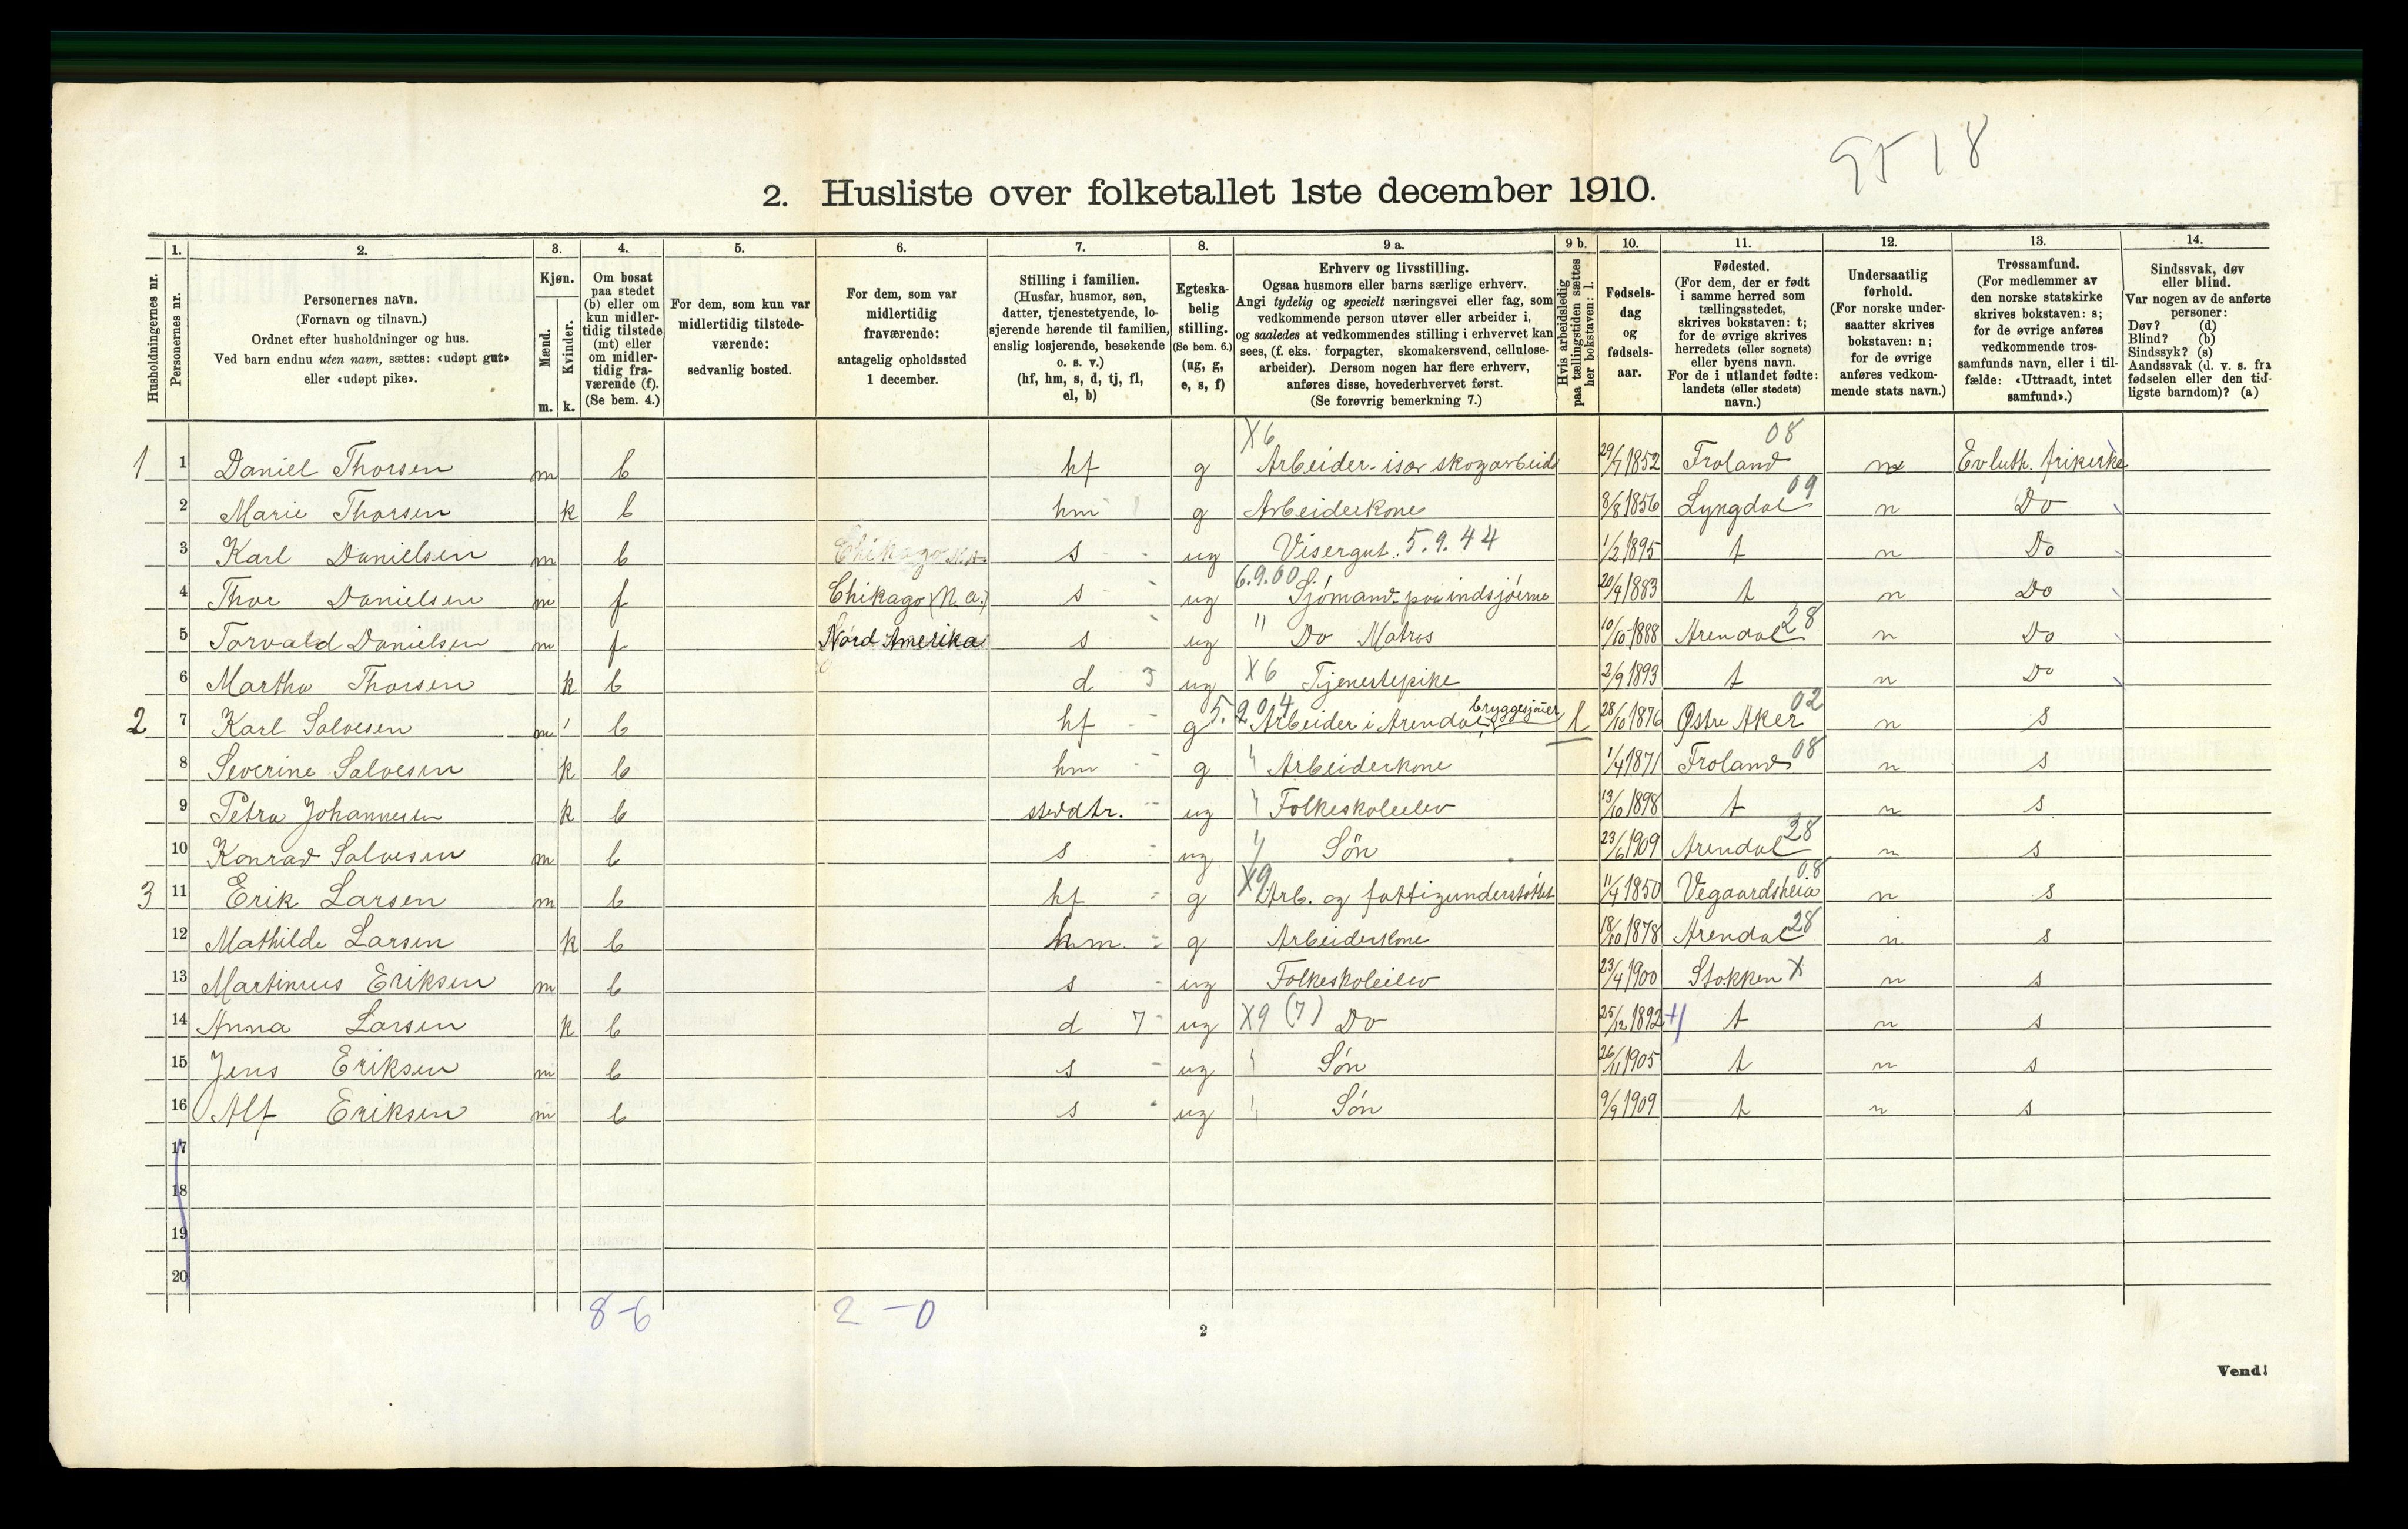 9518
2. Husliste over folketallet 1ste december 1910.
Husholdningernes nr.
1. Personernes nr.
2. Personernes navn. (Fornavn og tilnavn.) Ordnet efter husholdninger og hus. Ved barn endnu uten navn, sættes: «udøpt gut» eller «udøpt pike».
3. Kjøn. Mænd. m. Kvinder. k.
4. Om bosat paa stedet (b) eller om kun midlertidig tilstede (mt) eller om midlertidig fraværende (f). (Se bem. 4.)
5. For dem, som kun var midlertidig tilstedeværende: sedvanlig bosted.
6. For dem, som var midlertidig fraværende: antagelig opholdssted 1 december.
7. Stilling i familien. (Husfar, husmor, søn, datter, tjenestetyende, losjerende hørende til familien, enslig losjerende, besøkende o. s. v.) (hf, hm, s, d, tj, fl, el, b)
8. Egteskabelig stilling. (Se bem. 6.) (ug, g, e, s, f)
9 a. Erhverv og livsstilling. Ogsaa husmors eller barns særlige erhverv. Angi tydelig og specielt næringsvei eller fag, som vedkommende person utøver eller arbeider i, og saaledes at vedkommendes stilling i erhvervet kan sees, (f. eks. forpagter, skomakersvend, cellulosearbeider). Dersom nogen har flere erhverv, anføres disse, hovederhvervet først. (Se forøvrig bemerkning 7.)
9 b. Hvis arbeidsledig paa tællingstiden sættes her bokstaven: l.
10. Fødselsdag og fødselsaar.
11. Fødested. (For dem, der er født i samme herred som tællingsstedet, skrives bokstaven: t; for de øvrige skrives herredets (eller sognets) eller byens navn. For de i utlandet fødte: landets (eller stedets) navn.)
12. Undersaatlig forhold. (For norske undersaatter skrives bokstaven: n; for de øvrige anføres vedkommende stats navn.)
13. Trossamfund. (For medlemmer av den norske statskirke skrives bokstaven: s; for de øvrige anføres vedkommende trossamfunds navn, eller i tilfælde: «Uttraadt, intet samfund».)
14. Sindssvak, døv eller blind. Var nogen av de anførte personer: Døv? (d) Blind? (b) Sindssyk? (s) Aandssvak (d. v. s. fra fødselen eller den tidligste barndom)? (a)
1 1 Daniel Thorsen m b hf g X6 Arbeider- især skogarbeid 29/7 1852 Froland 08 n Ev luth. frikirke
2 Marie Thorsen k b hm g Arbeiderkone 8/8 1856 Lyngdal 09 n Do
3 Karl Danielsen m b Chikago s ug Visergut 5.9.44 1/2 1895 t n Do
4 Thor Danielsen m f Chikago (N. a.) s ug 6.9.00 Sjømand paa indsjøerne 20/9 1883 t n Do
5 Torvald Danielsen m f Nord Amerika s ug " Do Matros 10/10 1888 Arendal 28 n Do
6 Martha Thorsen k b d 3 ug X6 Tjenestepike 2/9 1893 t n Do
2 7 Karl Salvesen m b hf g 5.9.04 Arbeider i Arendal, bryggesjauer l 28/10 1876 Østre Aker 02 n s
8 Severine Salvesen k b hm g " Arbeiderkone 1/4 1871 Froland 08 n s
9 Petra Johannesen k b stevdtr. ug " Folkeskoleelev 13/10 1898 t n s
10 Konrad Salvesen m b s ug " Søn 23/6 1909 Arendal 28 n s
3 11 Erik Larsen m b hf g X9 Arb. og fattigunderstøttet 11/4 1850 Vegaardsheia 08 n s
12 Mathilde Larsen k b hm g Arbeiderkone 18/10 1878 Arendal 28 n s
13 Martinius Eriksen m b s ug Folkeskoleelev 23/4 1900 Stokken X n s
14 Anna Larsen k b d 7 ug X9 (7) Do 25/12 1892 t n s
15 Jens Eriksen m b s ug " Søn 26/11 1905 t n s
16 Alf Eriksen m b s ug " Søn 9/9 1909 t n s
17
18
19
20
8-6 2-0
2
Vend!